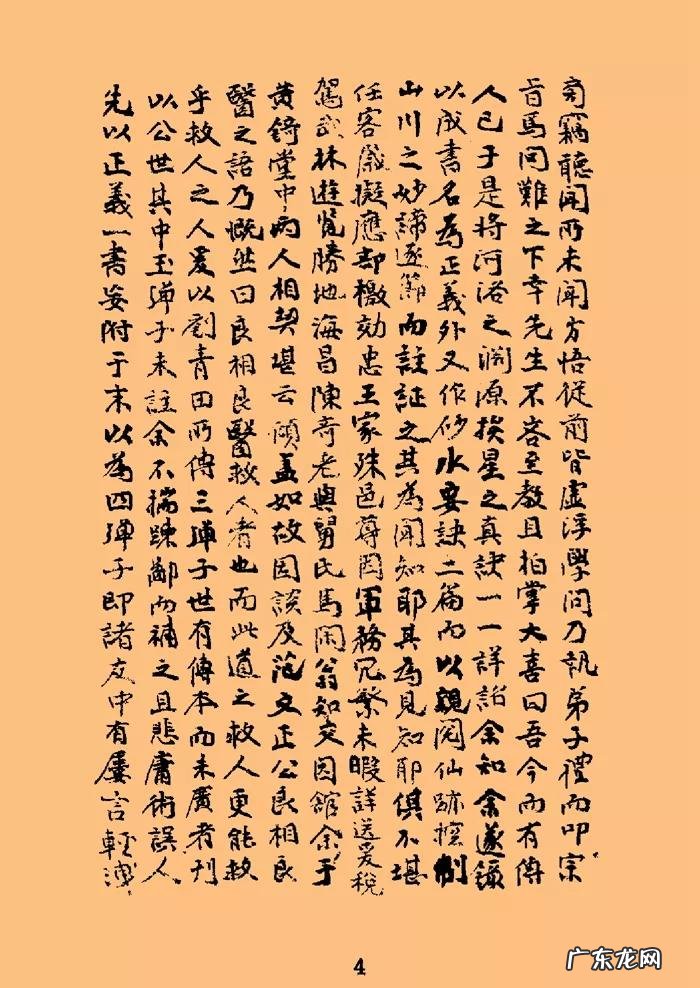 竊聽聞所未聞方悟從前皆虛浮學問乃執弟子禮而叩宗
旨焉問難之下幸先生不吝至教且拍掌大喜曰吾今而有傳
人已于是將河洛之淵源挨星之真訣一一詳詔余知余遂鐫
以成書名為正義外又作砂水要訣二篇而以親閱仙跡
山川之妙諦逐節而註証之其為聞知耶其為見知耶俱不堪
任客歲擬應却檄効忠王家殊邑尊因軍務冗繁未暇詳送爰稅
駕武林遊覽勝地海昌陳奇老與舅氏馬閑翁知交因館余于
黄錡堂中兩人相契堪云傾蓋如故因談及范文正公良相良
醫之語乃慨然曰良相良醫救人者也而此道之救人更能救
乎救人之人爰以劉青田所傳三彈子世有傳本而未廣者刊
以公世其中玉彈子未註余不揣踈鄙而補之且悲庸術誤人
先以正義一書妄附于末以為四彈子即諸友中有屢言輕洩
4
广东龙网